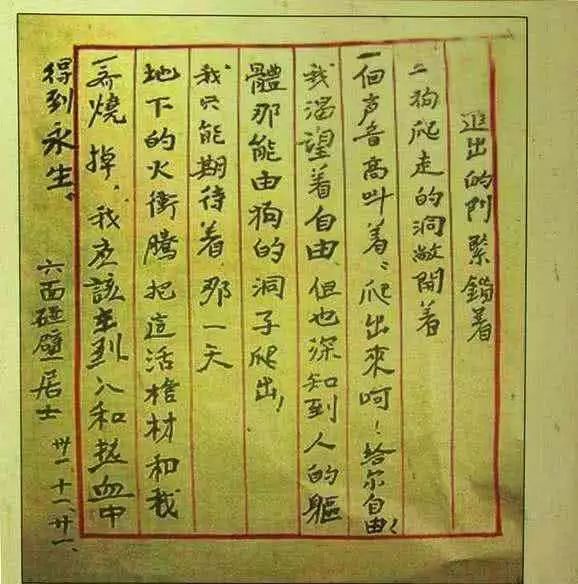 進出的門緊鎖着
二狗爬走的洞敞開着
一個声音高叫着、爬出來呵！給尔自由！
我渴望着自由、但也深知到人的軀
體那能由狗的洞子爬出！
我只能期待着、那一天
地下的火衝騰把這活棺材和我
一齐燒掉、我应該在烈火和熱血中
得到永生、
六面碰壁居士 卅一、十一、廿一、